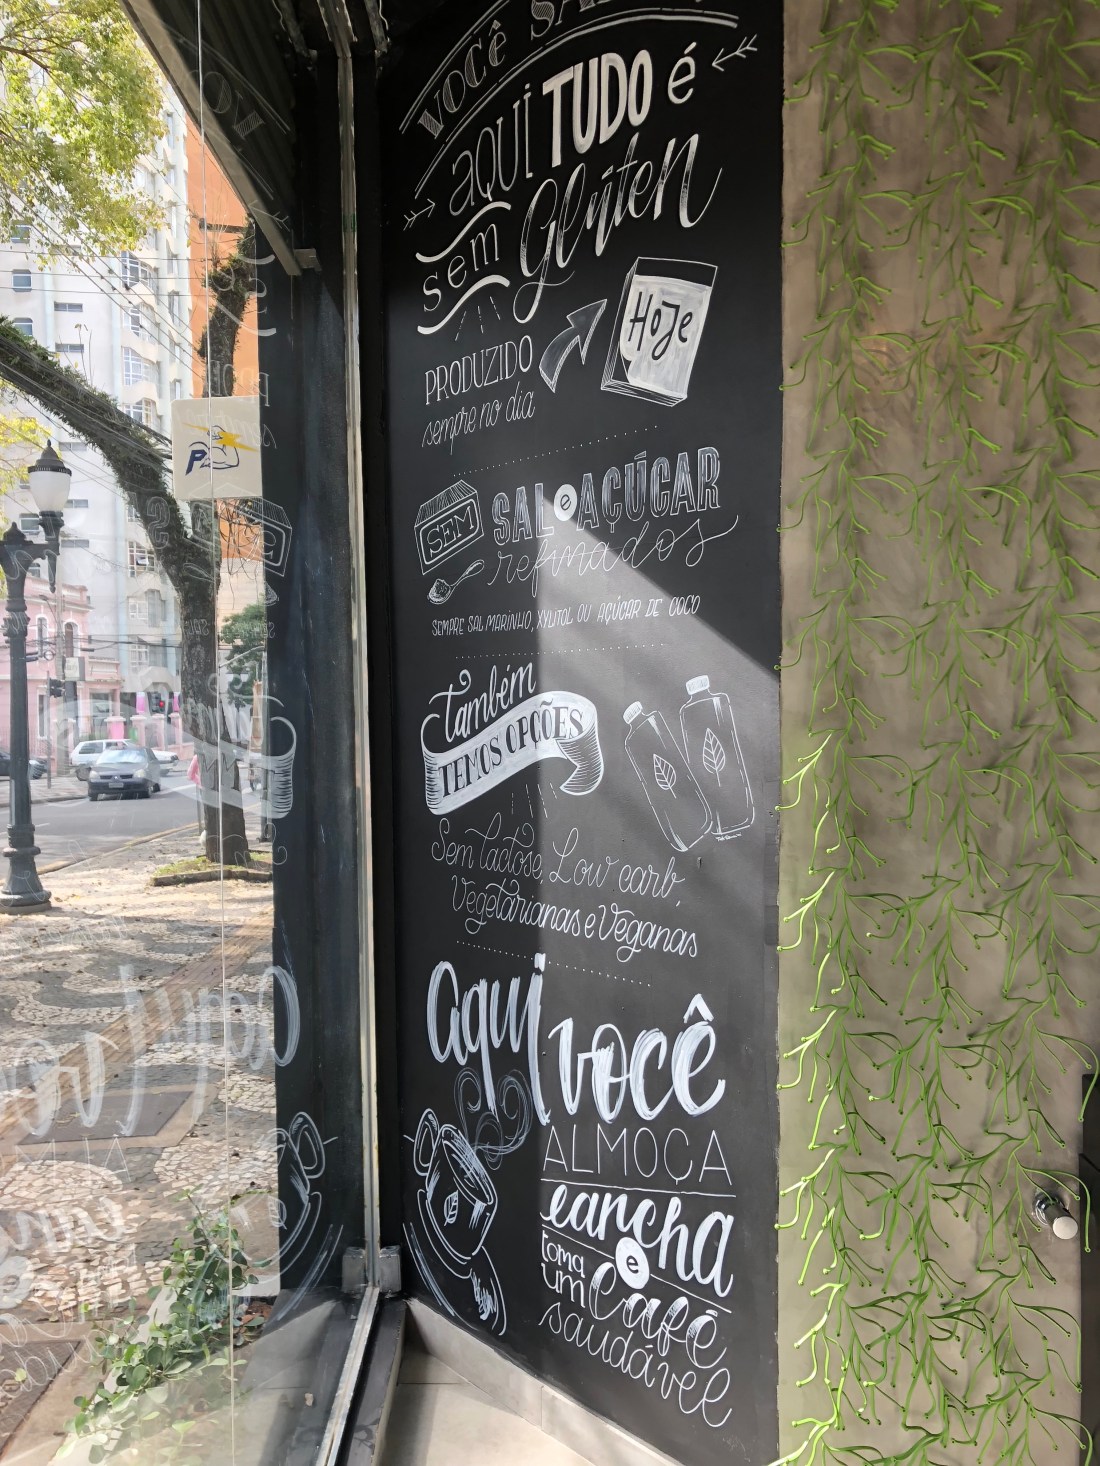 VOCÊ
AQUI TUDO é
sem Glúten
PRODUZIDO
sempre no dia
HoJe
SEM
SAL e AÇÚCAR
refinados
SEMPRE SAL MARINHO, XYLITOL OU AÇÚCAR DE COCO
também
TEMOS OPÇÕES
Sem lactose, Low carb,
Vegetarianas e Veganas
aqui você
ALMOÇA
lancha
e
toma
um Café
saudável